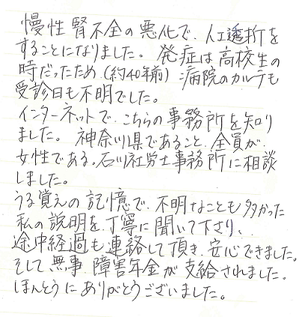 慢性腎不全の悪化で、人工透析を
することになりました。発症は高校生の
時だったため(約40年前)病院のカルテも
受診日も不明でした。
インターネットで、こちらの事務所を知り
ました。神奈川県であること、全員が、
女性である、石川社労士事務所に相談
しました。
うる覚えの記憶で、不明なことも多かった
私の説明を、丁寧に聞いて下さり、
途中経過も連絡して頂き、安心できました。
そして無事、障害年金が支給されました。
ほんとうにありがとうございました。